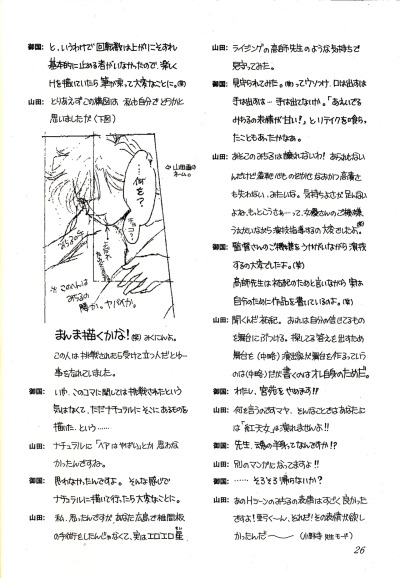 御国: と、いうわけで回転数は上がりこそすれ
基本的に止める者がいなかったので、楽しく
Hを描いていたら筆が乗って大変なことに。(笑)
山田: とりあえずこの構図は 私も自分でどうかと
思いましたが(下図)
…何を?
山田画の
ネーム。
※このへんは
みちるの
まんま描くかな!(笑)みくにんよ。
この人は挑戦されたら受けて立つ人だとゆー
事を忘れていました。
御国: いや、このコマに関しては挑戦されたという
気はなくて、ただナチュラルにそこにあるものを
描いた、という……
山田: ナチュラルに「ヘアはやばい」とか思わな
かったんですね。
御国: 思わなかったんですよ。そんな感じで
ナチュラルに描いて行ったら大変なことに。
山田: 私、思ったんですが、あなた広島で椎間板
の手術をしたんじゃなくて、実はエロエロ星
山田: ライジングの高師先生のような気持ちで
見守ってみた。
御国: 見守られてみた。(笑)ってウソつけ、口は出すは
手は出すは…手は出てないか。「あえいでる
みちるの表情が甘い!」とリテイクを食らっ
たこともあったがなあ。
山田: あそこのみちるは譲れないわ! あられもない
も失わない、みたいな。気持ちよさが足んない
よね、もっとこうさぁーって、女優さんのご機嫌
うかがいながら演技指導するの大変でしたわ。(笑)
御国: 監督さんのご機嫌をうかがいながら演技
するの大変でしたよ。(笑)
高師先生は祐紀のためと言いながら実は
自分のために作品を書いているのよ。(笑)
山田: 聞くんだ祐紀。おれは自分の信じてるもの
を舞台にぶつける。探してる答えを出すため
舞台を(中略)演出家が舞台を作るっていう
のは(中略)だが書くのはオレ自身のためだ。
御国: わたし、宮苑をやめます!!
山田: 何を言うのですマヤ、そんなことではあなたに
は「紅天女」は演れませんよ!!
御国: 先生、魂の半身ってなんですか!?
山田: 別のマンガになってますよ!!
御国: ……そろそろ帰らないか?
山田: あのHシーンのみちるの表情はすごく良かった
ですよ!野々く〜ん、それだ!!その表情が欲し
かったんだ〜〜(小野寺先生モード)
26